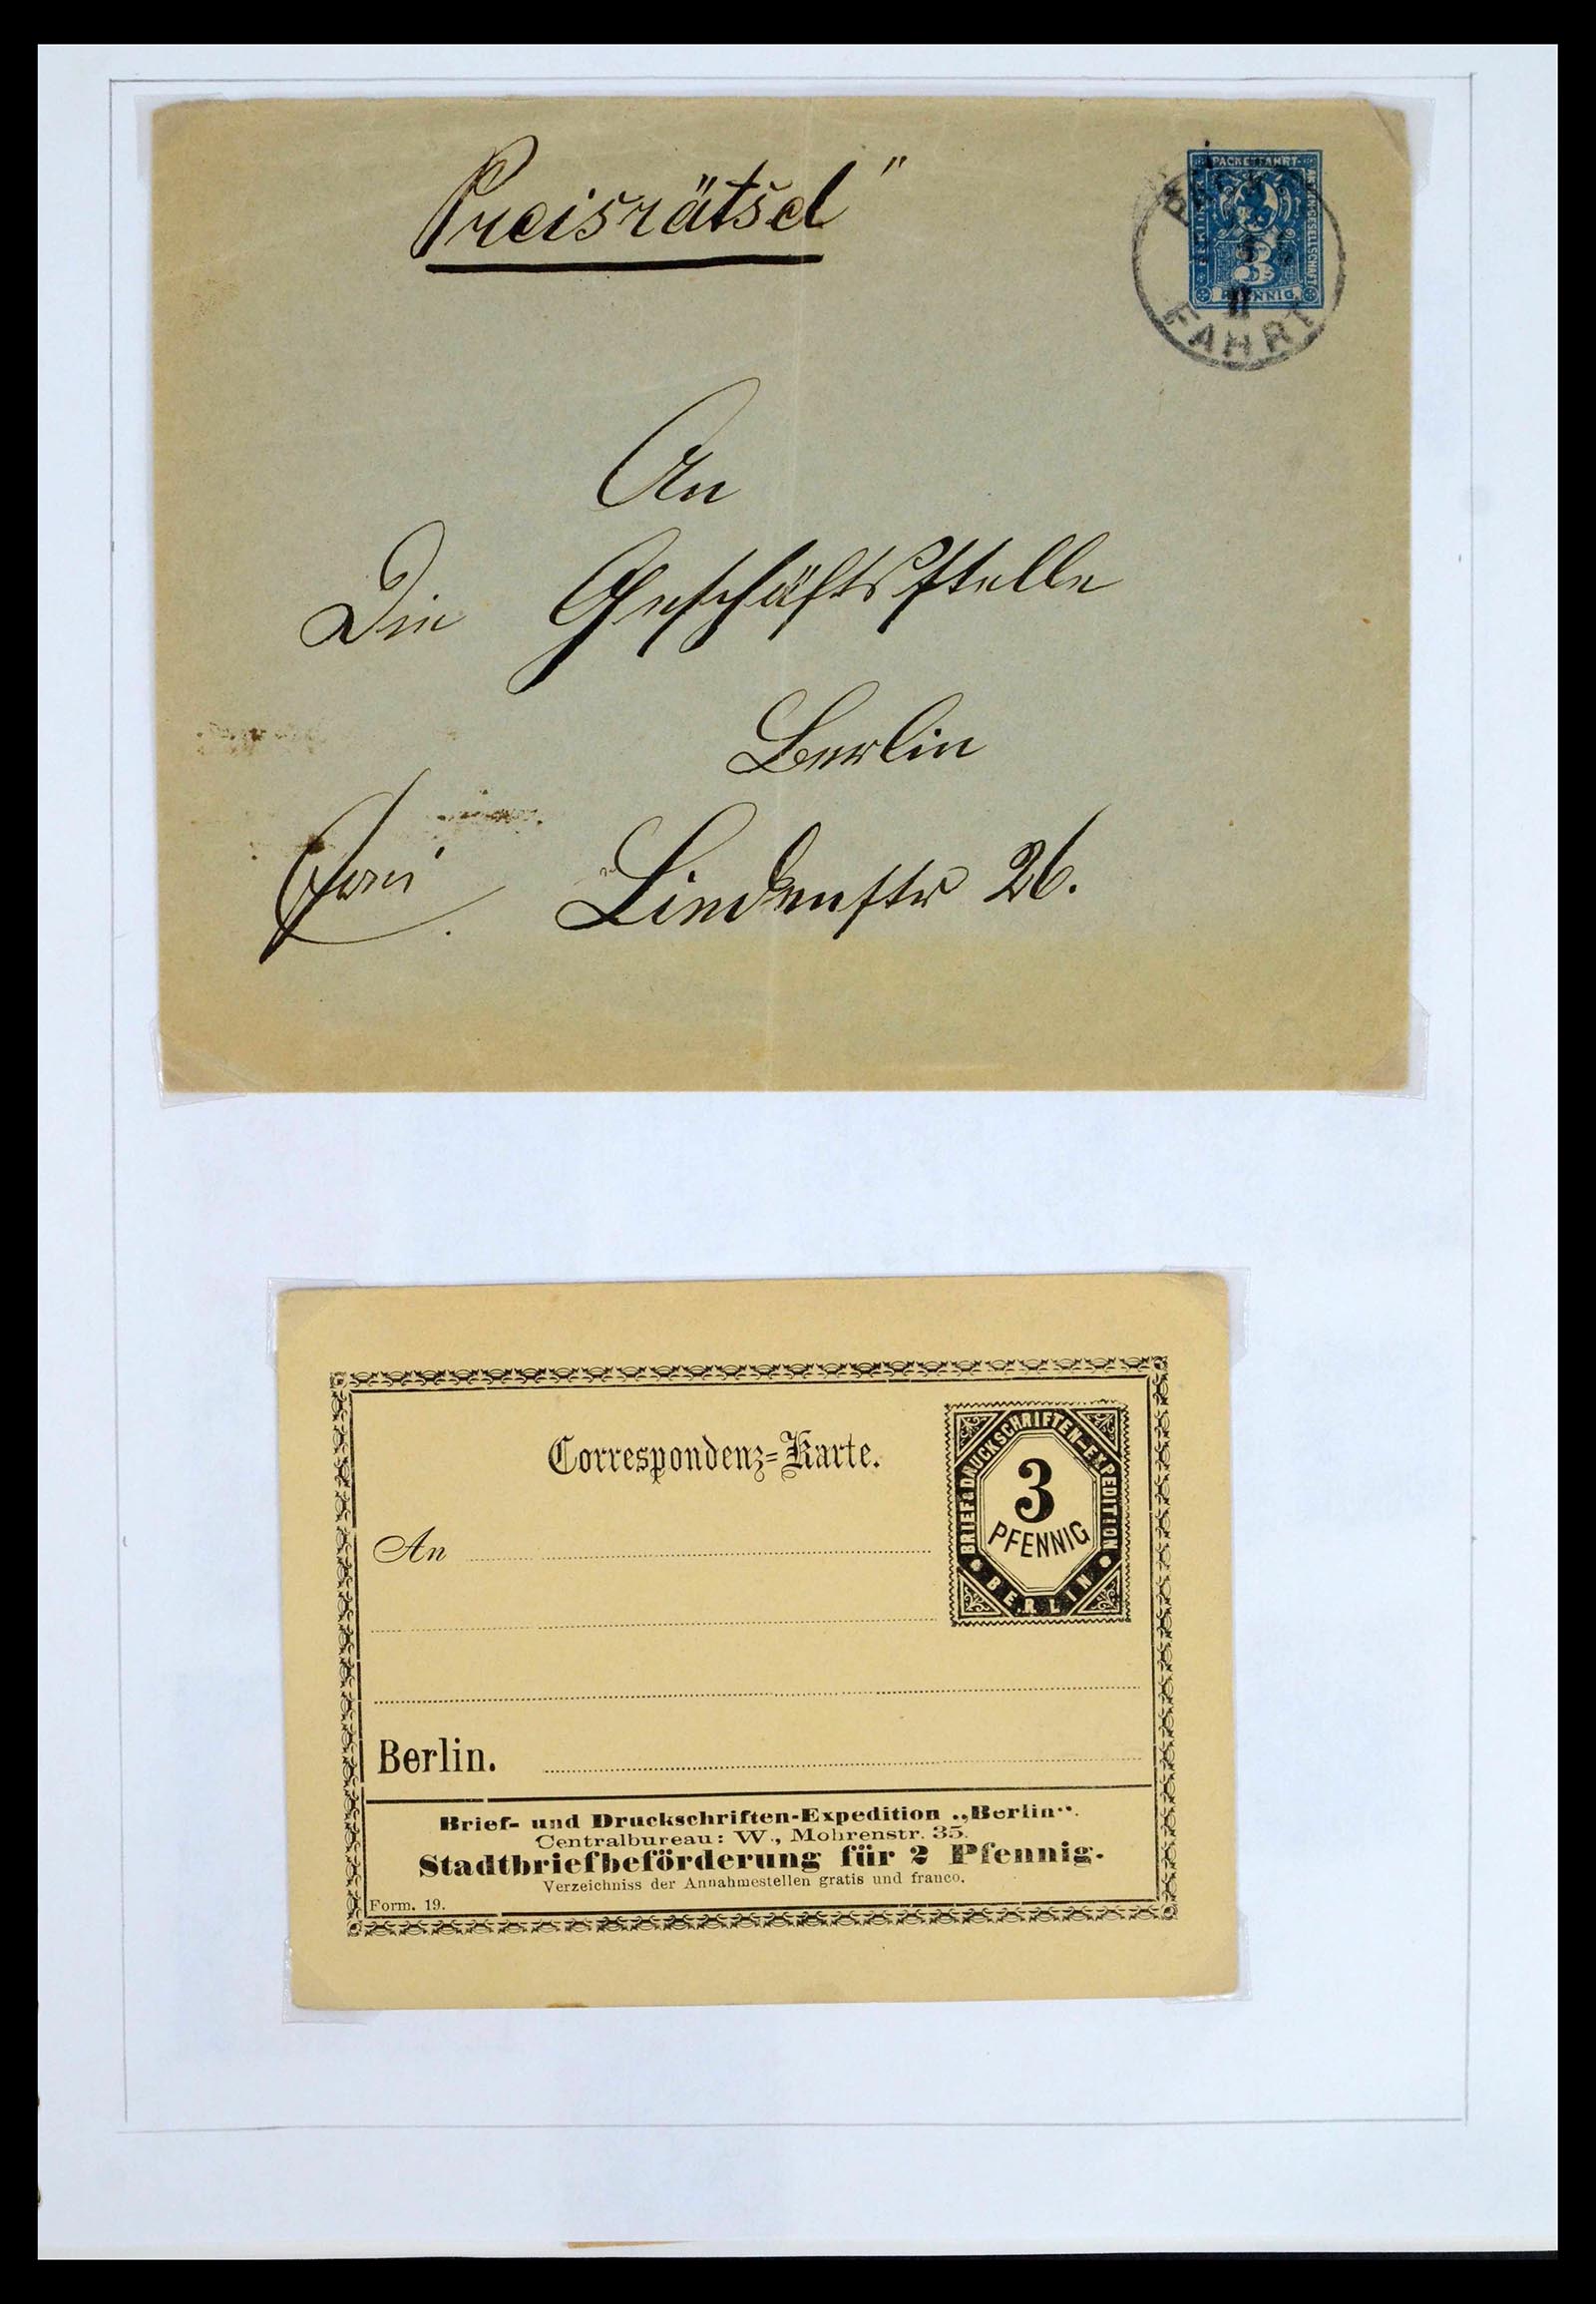 Preisrätsel"
PACKETFAHRT-
AKTIENGESELLSCHAFT
BERLINER
3
PFENNIG
FAHRT
An
Die Geschäftsstelle
Berlin
Lindenstr 26.
Correspondenz=Karte.
BRIEF & DRUCKSCHRIFTEN-EXPEDITION
3
PFENNIG
BERLIN
An
Berlin.
Brief- und Druckschriften-Expedition „Berlin“.
Centralbureau: W., Mohrenstr. 35.
Stadtbriefbeförderung für 2 Pfennig.
Verzeichniss der Annahmestellen gratis und franco.
Form. 19.